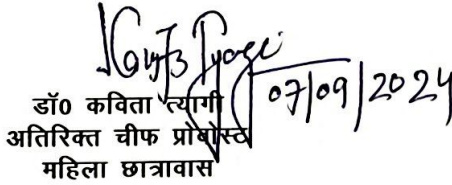 07/09/2024
डॉ0 कविता त्यागी
अतिरिक्त चीफ प्रोवोस्ट
महिला छात्रावास